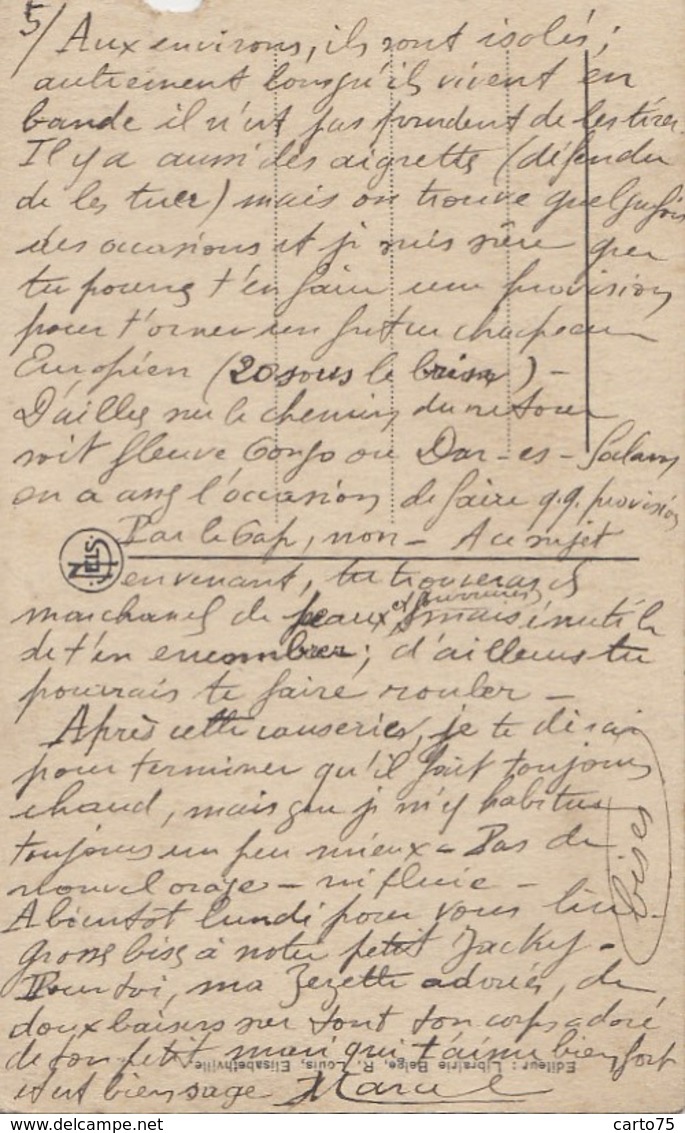 5/ Aux environs, ils sont isolés ;
autrement lorsqu'ils vivent en
bande il n'est pas prudent de les tirer.
Il y a aussi des aigrettes (défendu
de les tuer) mais on trouve quelquefois
des occasions et je suis sûre que
tu pourras t'en faire une provision
pour t'orner un futur chapeau
Européen (20 sous le brin) –
D'ailles sur le chemin du retour
soit fleuve Congo ou Dar-es-Salam
on a l'occasion de faire q.q. provision
Par le Cap, non – A ce sujet
en venant, tu trouveras
marchands de peaux et fourrures mais inutile
de t'en encombrer ; d'ailleurs tu
pourrais te faire rouler –
Après cette causerie, je te dirai
pour terminer qu'il fait toujours
chaud, mais que je m'y habitue
toujours un peu mieux – Pas de
nouvel orage – ni pluie –
A bientôt lundi pour vous lire.
Grosses bises à notre petit Jacky –
Pour toi, ma Zezette adorée, de
doux baisers sur tout ton corps adoré
de ton petit mari qui t'aime bien fort
et est bien sage Marcel
bises
NELS
Editeur : Librairie Belge, R. Louis, Elisabethville.
carto75